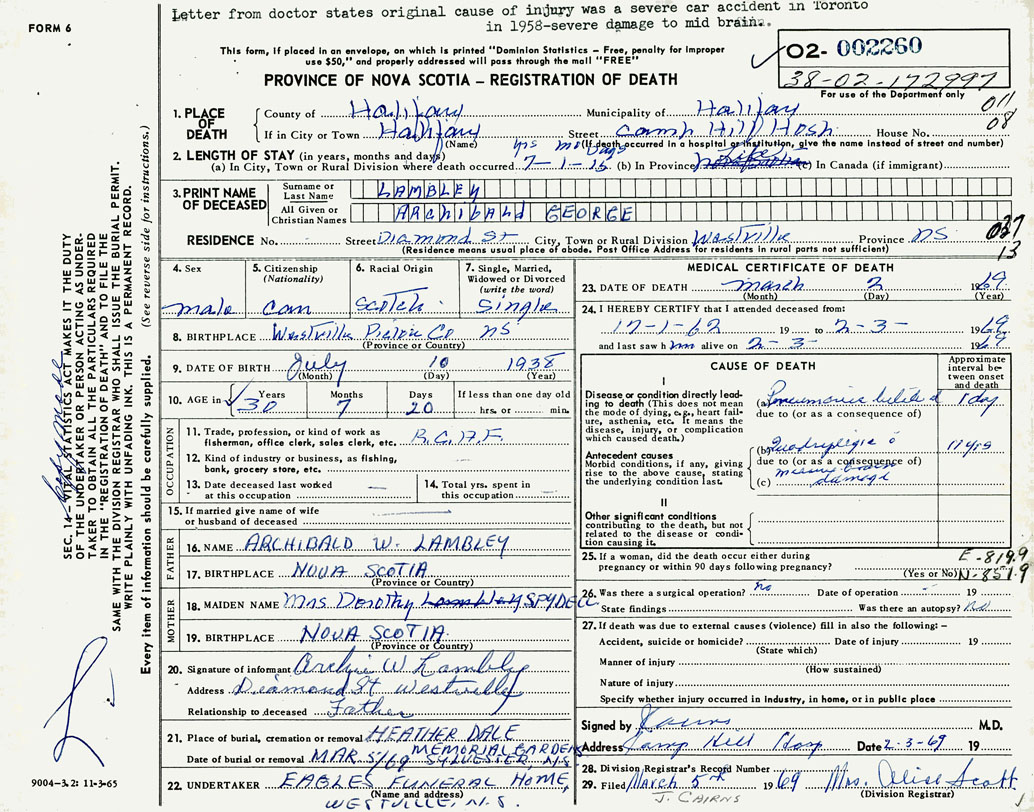 Letter from doctor states original cause of injury was a severe car accident in Toronto
in 1958-severe damage to mid brain.
FORM 6
This form, if placed in an envelope, on which is printed "Dominion Statistics – Free, penalty for improper
use $50," and properly addressed will pass through the mail "FREE"
02- 002260
38-02-172997
For use of the Department only
PROVINCE OF NOVA SCOTIA – REGISTRATION OF DEATH
011
08
1. PLACE OF DEATH
County of Halifax Municipality of Halifax
If in City or Town Halifax Street Camp Hill Hosp House No.
(Name) (If death occurred in a hospital or institution, give the name instead of street and number)
yrs mo days
2. LENGTH OF STAY (in years, months and days)
(a) In City, Town or Rural Division where death occurred 7-1-15 (b) In Province Life (c) In Canada (if immigrant)
3. PRINT NAME OF DECEASED
Surname or Last Name LAMBLEY
All Given or Christian Names ARCHIBALD GEORGE
RESIDENCE No. Street Diamond St City, Town or Rural Division Westville Province NS
(Residence means usual place of abode. Post Office Address for residents in rural parts not sufficient)
037
13
4. Sex
male
5. Citizenship (Nationality)
can
6. Racial Origin
Scotch
7. Single, Married, Widowed or Divorced (write the word)
Single
8. BIRTHPLACE Westville Pictou Co NS
(Province or Country)
9. DATE OF BIRTH July 10 1938
(Month) (Day) (Year)
10. AGE in Years Months Days If less than one day old
30 7 20 hrs. or min.
OCCUPATION
11. Trade, profession, or kind of work as fisherman, office clerk, sales clerk, etc. R.C.A.F.
12. Kind of industry or business, as fishing, bank, grocery store, etc. —
13. Date deceased last worked at this occupation —
14. Total yrs. spent in this occupation —
15. If married give name of wife or husband of deceased —
FATHER
16. NAME ARCHIBALD W. LAMBLEY
17. BIRTHPLACE NOVA SCOTIA
(Province or Country)
MOTHER
18. MAIDEN NAME Mrs Dorothy Lambley SPYDELL
19. BIRTHPLACE NOVA SCOTIA
(Province or Country)
20. Signature of informant Archie W. Lambley
Address Diamond St Westville
Relationship to deceased Father
21. Place of burial, cremation or removal HEATHER DALE
MEMORIAL GARDENS
Date of burial or removal MAR 5/69 SYLVESTER, N.S.
22. UNDERTAKER EAGLES FUNERAL HOME,
(Name and address)
WESTVILLE, N.S.
MEDICAL CERTIFICATE OF DEATH
23. DATE OF DEATH March 2 1969
(Month) (Day) (Year)
24. I HEREBY CERTIFY that I attended deceased from:
17-1-62 19 to 2-3- 1969
and last saw him alive on 2-3- 1969
CAUSE OF DEATH
Approximate interval between onset and death
I
Disease or condition directly leading to death (This does not mean the mode of dying, e.g., heart failure, asthenia, etc. It means the disease, injury, or complication which caused death.)
(a) Pneumonia bilateral 1 day
due to (or as a consequence of)
Antecedent causes
Morbid conditions, if any, giving rise to the above cause, stating the underlying condition last.
(b) Quadriplegia 11 yrs
due to (or as a consequence of)
(c) massive brain damage
II
Other significant conditions
contributing to the death, but not related to the disease or condition causing it.
25. If a woman, did the death occur either during
pregnancy or within 90 days following pregnancy?
(Yes or No)
E-819.9
N-851.9
26. Was there a surgical operation? no Date of operation - 19
State findings Was there an autopsy? no
27. If death was due to external causes (violence) fill in also the following: –
Accident, suicide or homicide? Date of injury 19
(State which)
Manner of injury
(How sustained)
Nature of injury
Specify whether injury occurred in industry, in home, or in public place
Signed by J Cairns M.D.
Address Camp Hill Hosp Date 2-3-69 19
28. Division Registrar's Record Number
29. Filed March 5th 1969 Mrs. Alise Scott
(Division Registrar)
J. CAIRNS
SEC. 14—VITAL STATISTICS ACT MAKES IT THE DUTY
OF THE UNDERTAKER OR PERSON ACTING AS UNDER-
TAKER TO OBTAIN ALL THE PARTICULARS REQUIRED
IN THE "REGISTRATION OF DEATH" AND TO FILE THE
SAME WITH THE DIVISION REGISTRAR WHO SHALL ISSUE THE BURIAL PERMIT.
WRITE PLAINLY WITH UNFADING INK. THIS IS A PERMANENT RECORD.
Every item of information should be carefully supplied. (See reverse side for instructions.)
9004-3.2: 11-3-65